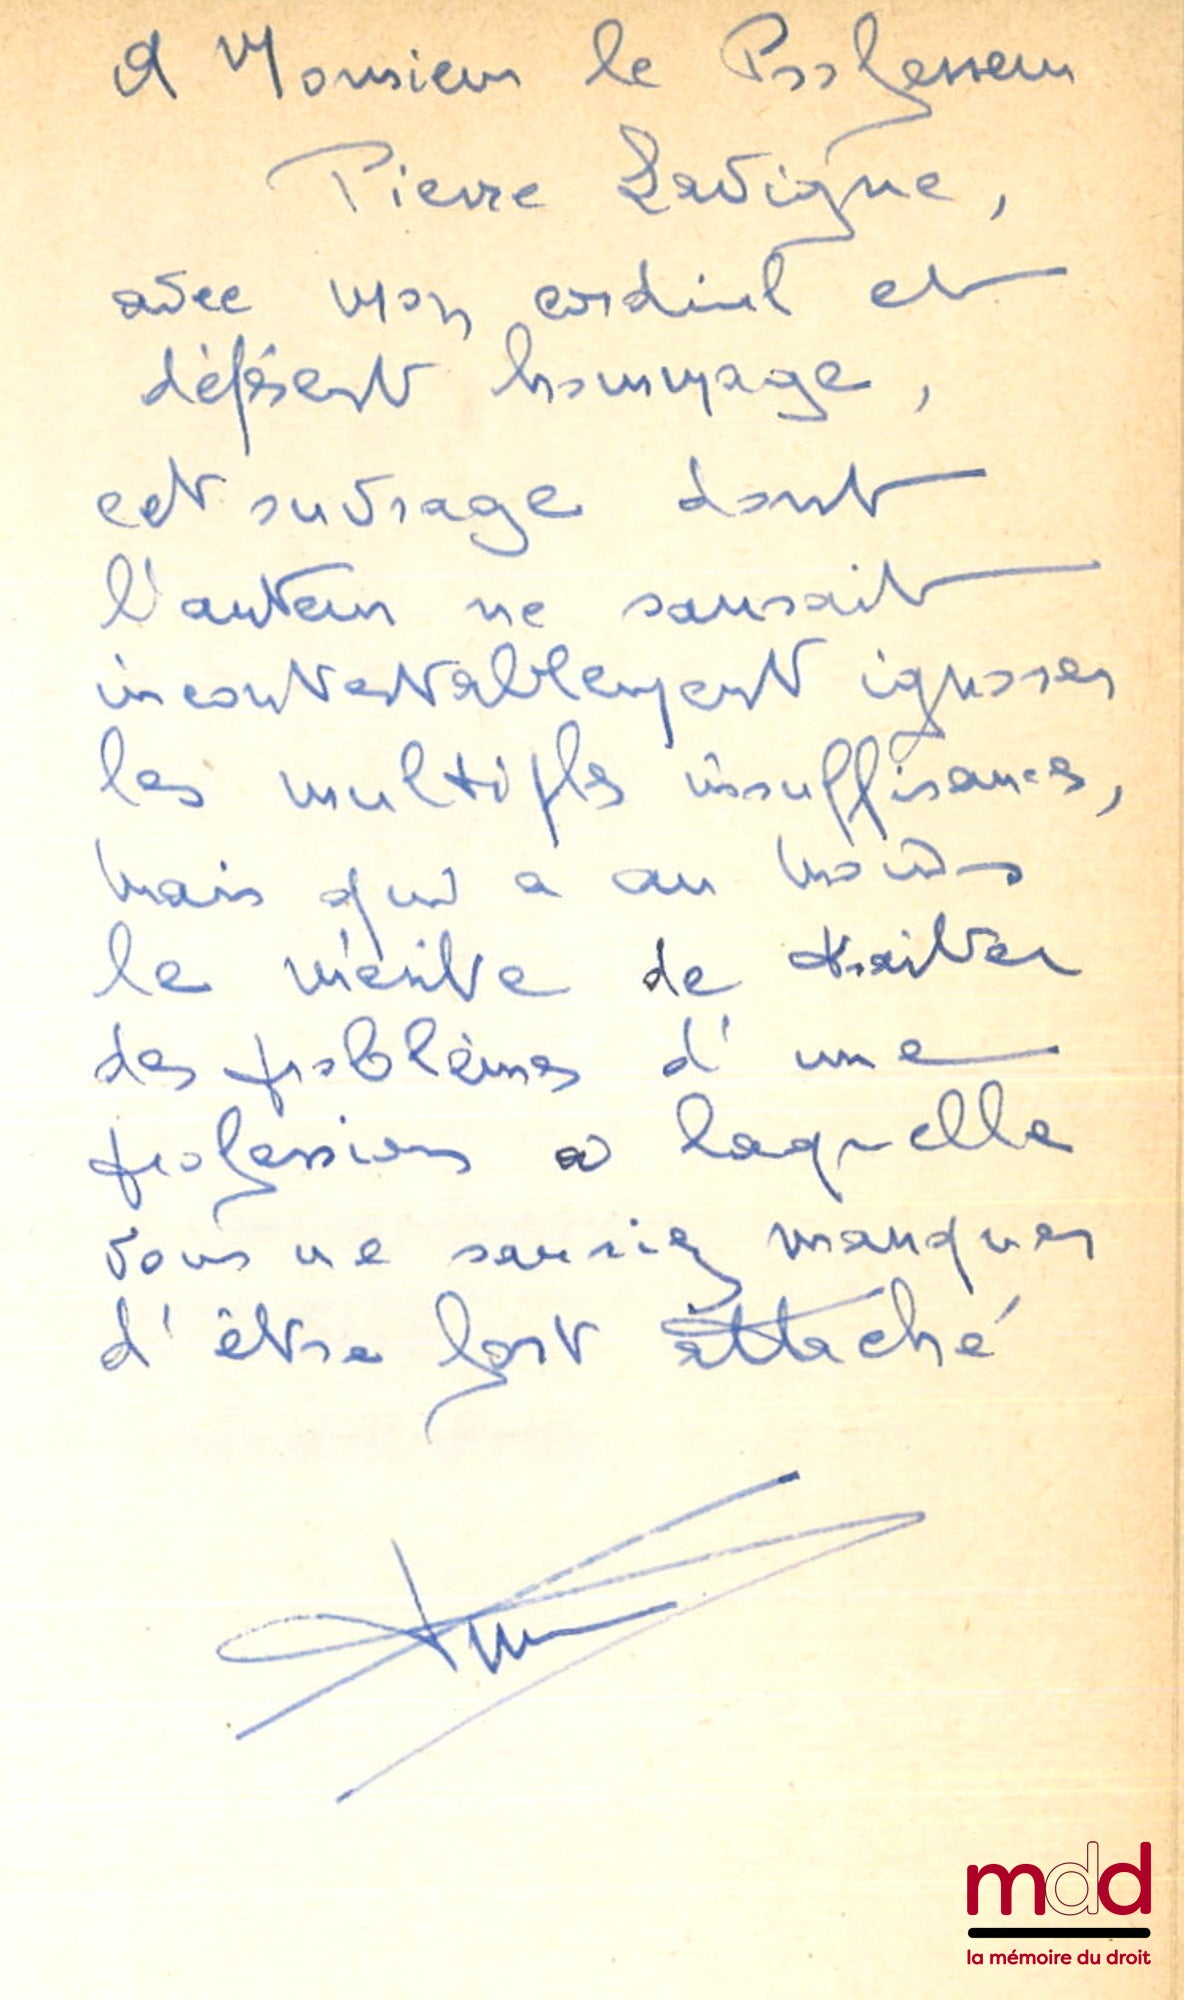 A Monsieur le Professeur
Pierre Lavigne,
avec mon cordial et
déférent hommage,
cet ouvrage dont
l'auteur ne saurait
incontestablement ignorer
les multiples insuffisances,
mais qui a au moins
le mérite de traiter
des problèmes d'une
profession à laquelle
vous ne sauriez manquer
d'être fort attaché
mdd
la mémoire du droit